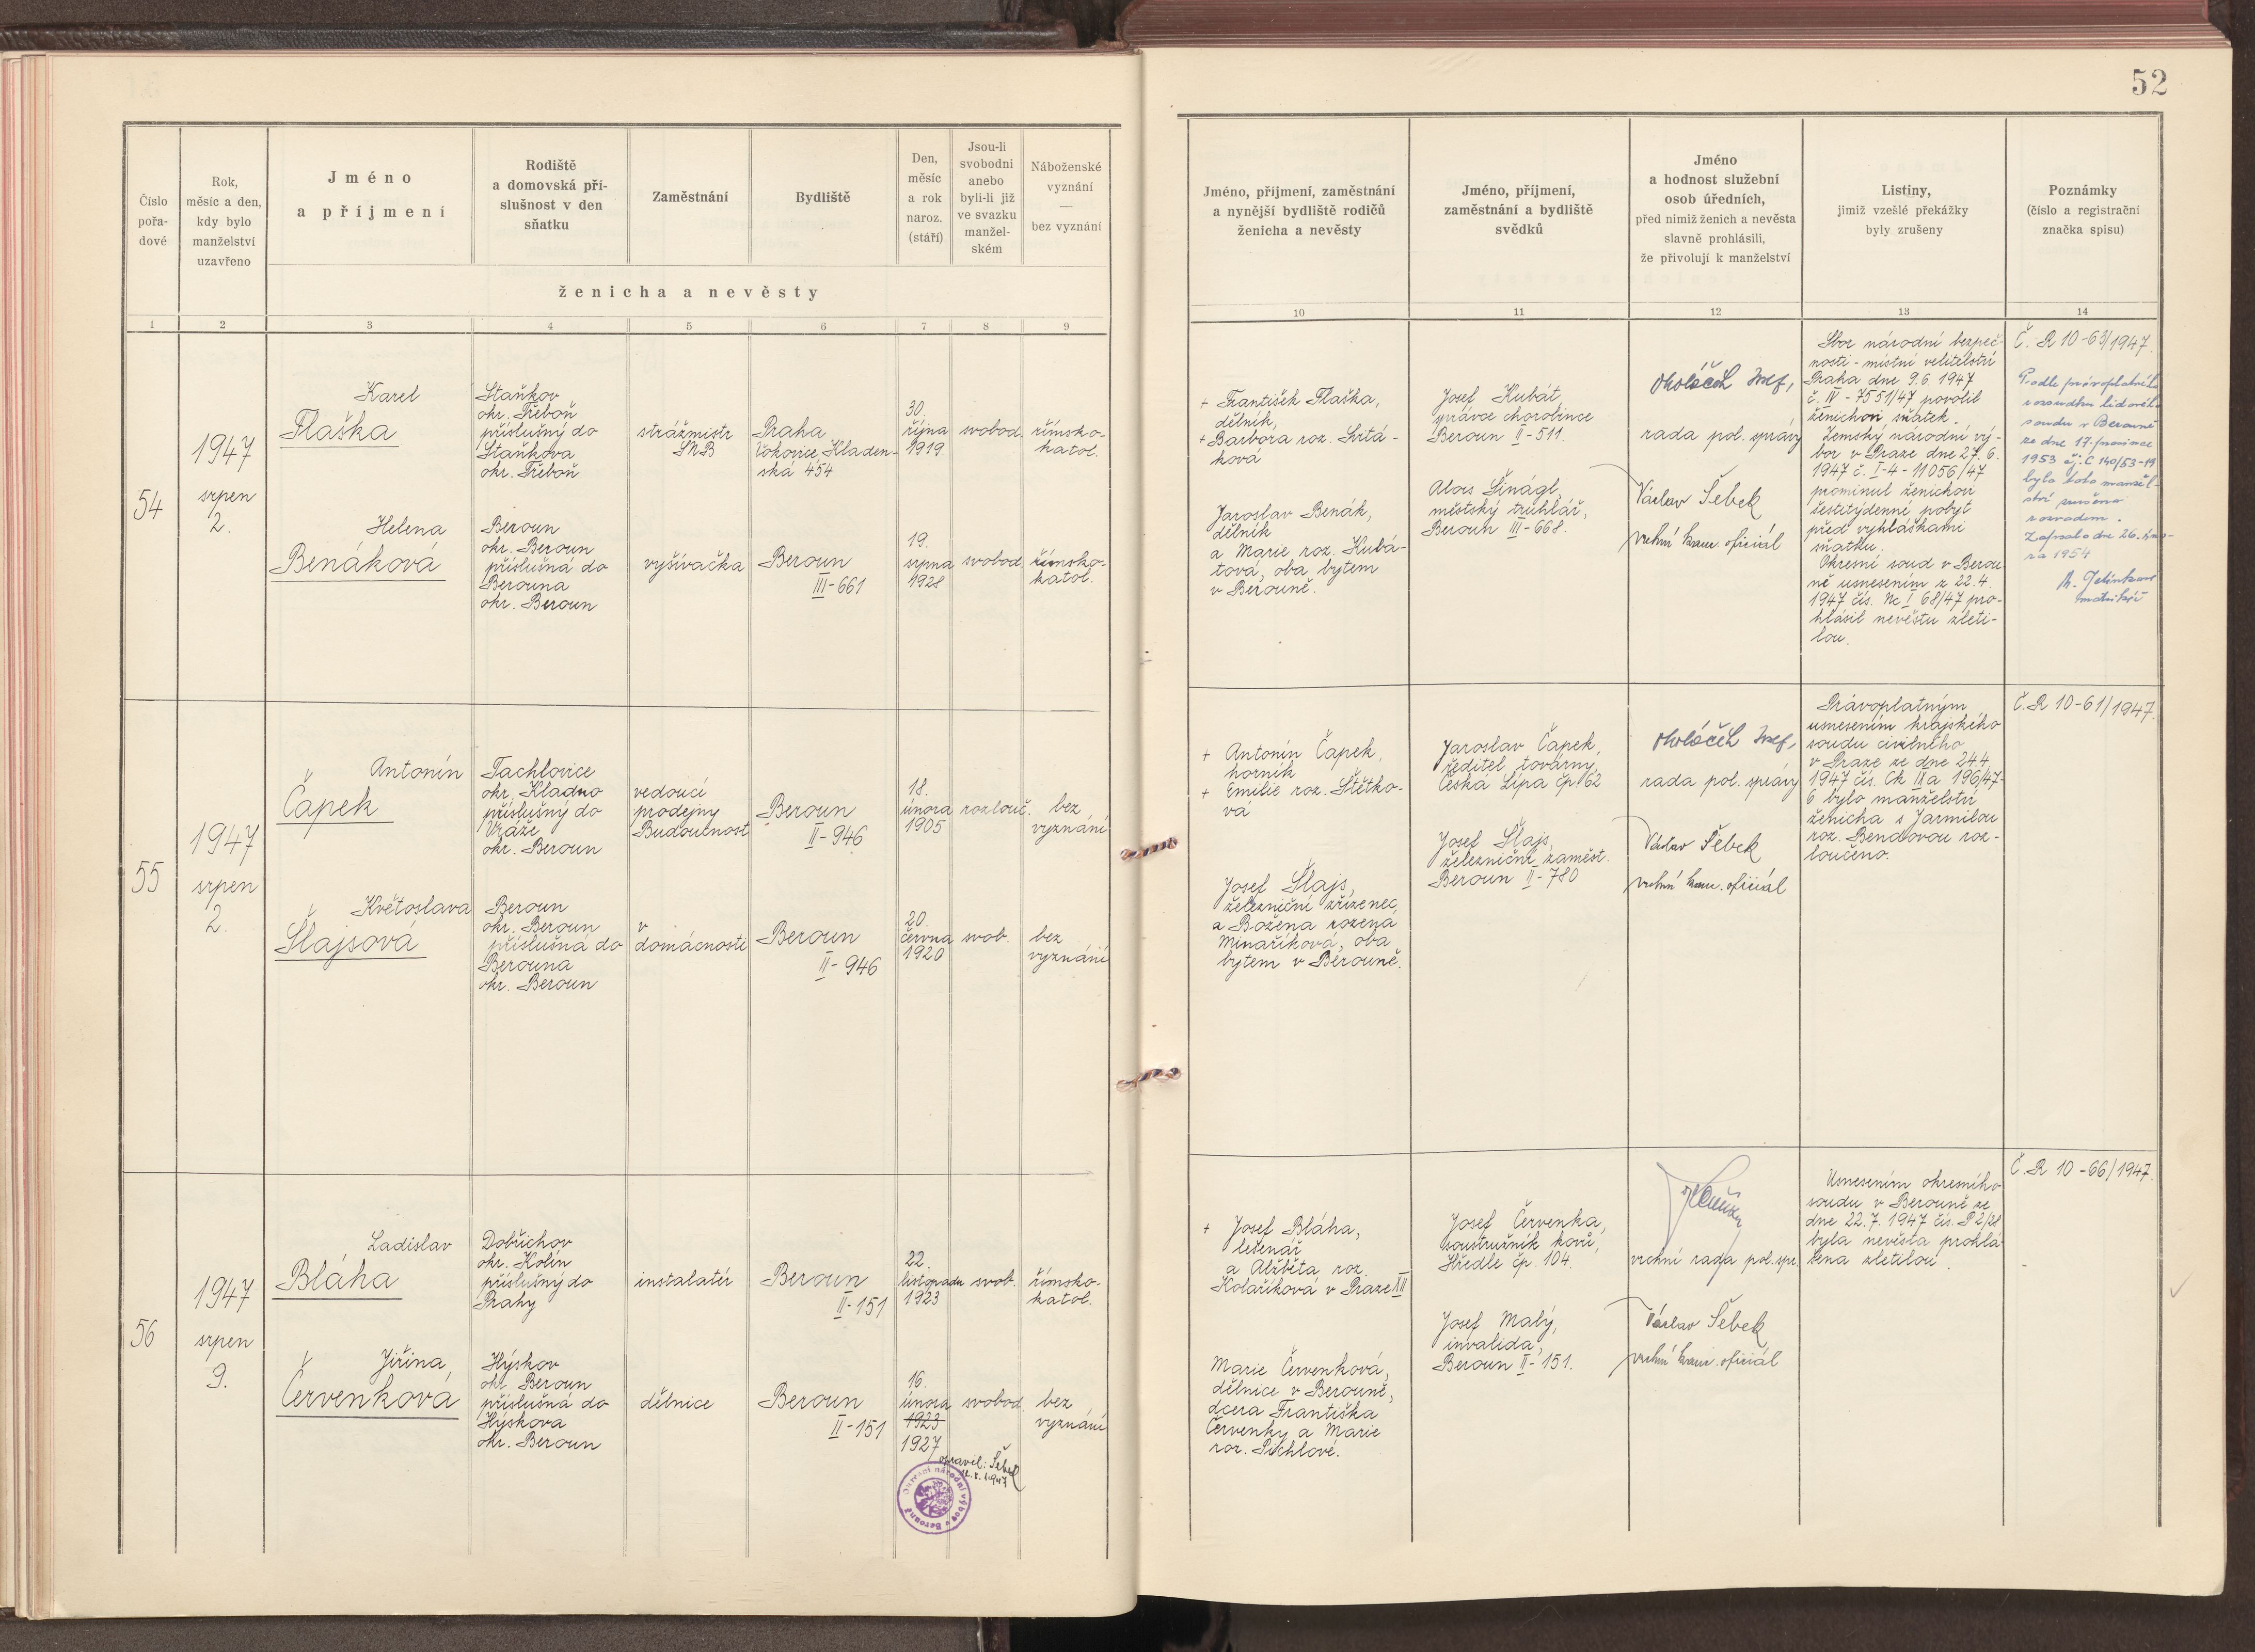 52
Číslo
pořa-
dové
Rok,
měsíc a den,
kdy bylo
manželství
uzavřeno
Jméno
a příjmení
Rodiště
a domovská pří-
slušnost v den
sňatku
Zaměstnání
Bydliště
Den,
měsíc
a rok
naroz.
(stáří)
Jsou-li
svobodni
anebo
byli-li již
ve svazku
manžel-
ském
Náboženské
vyznání
—
bez vyznání
ženicha a nevěsty
Jméno, příjmení, zaměstnání
a nynější bydliště rodičů
ženicha a nevěsty
Jméno, příjmení,
zaměstnání a bydliště
svědků
Jméno
a hodnost služební
osob úředních,
před nimiž ženich a nevěsta
slavně prohlásili,
že přivolují k manželství
Listiny,
jimiž vzešlé překážky
byly zrušeny
Poznámky
(číslo a registrační
značka spisu)
1 2 3 4 5 6 7 8 9 10 11 12 13 14
54
1947
srpen
2.
Karel
Flaška
Staňkov
okr. Třeboň
příslušný do
Staňkova
okr. Třeboň
strážmistr
SNB
Praha
Vokovice, Kladen-
ská 454
30.
října
1919
svobod.
římsko-
katol.
Helena
Benáková
Beroun
okr. Beroun
příslušná do
Berouna
okr. Beroun
vyšívačka
Beroun
III-661
19.
srpna
1928
svobod.
římsko-
katol.
+ František Flaška,
dělník,
+ Barbora roz. Svitá-
ková
Jaroslav Benák,
dělník
a Marie roz. Kubá-
tová, oba bytem
v Berouně.
Josef Kubát,
správce chorobince
Beroun II-511.
Alois Šinágl,
městský truhlář,
Beroun III-668.
Josef,
rada pol. správy
Václav Šebek
vrchní kanc. oficiál
Sbor národní bezpeč-
nosti - místní velitelství
Praha dne 9.6.1947
č. IV - 7551/47 povolil
ženichovi sňatek.
Zemský národní vý-
bor v Praze dne 27.6.
1947 č. I-4-11056/47
prominul ženichovi
šestitýdenní pobyt
před vyhláškami
sňatku.
Okresní soud v Berou-
ně usnesením z 22.4.
1947 čís. Nc I 68/47 pro-
hlásil nevěstu zleti-
lou.
Č. R 10-63/1947.
Podle právoplatného
rozsudku lidového
soudu v Berouně
ze dne 17. prosince
1953 čj. C 140/53-19
bylo toto manžel-
ství zrušeno
rozvodem.
Zapsáno dne 26. úno-
ra 1954
matrikář
55
1947
srpen
2.
Antonín
Čapek
Tachlovice
okr. Kladno
příslušný do
Vráže
okr. Beroun
vedoucí
prodejny
Budoucnost
Beroun
II-946
18.
února
1905
rozlouč.
bez
vyznání
Květoslava
Šlajsová
Beroun
okr. Beroun
příslušná do
Berouna
okr. Beroun
v
domácnosti
Beroun
II-946
20.
června
1920
svob.
bez
vyznání
+ Antonín Čapek,
horník
+ Emilie roz. Štětko-
vá
Josef Šlajs,
železniční zřízenec,
a Božena rozená
Minaříková, oba
bytem v Berouně.
Jaroslav Čapek,
ředitel továrny,
Česká Lípa čp. 62
Josef Šlajs,
železniční zaměst.
Beroun II-780
Josef,
rada pol. správy
Václav Šebek
vrchní kanc. oficiál
Právoplatným
usnesením krajského
soudu civilního
v Praze ze dne 24.4.
1947 čís. Ck IIa 196/47-
6 bylo manželství
ženicha s Jarmilou
roz. Bendovou roz-
loučeno.
Č. R 10-61/1947.
56
1947
srpen
9.
Ladislav
Bláha
Dobřichov
okr. Kolín
příslušný do
Prahy
instalatér
Beroun
II-151
22.
listopadu
1923
svob.
římsko-
katol.
Jiřina
Červenková
Hýskov
okr. Beroun
příslušná do
Hýskova
okr. Beroun
dělnice
Beroun
II-151
16.
února
1923
1927
svobod.
bez
vyznání
opravil: Šebek
Okresní národní výbor v Berouně
+ Josef Bláha,
lešenář
a Alžběta roz.
Kolaříková v Praze XII
Marie Červenková,
dělnice v Berouně,
dcera Františka
Červenky a Marie
roz. Pichlové.
Josef Červenka,
soustružník kovů,
Hředle čp. 104.
Josef Malý,
invalida,
Beroun II-151.
vrchní rada pol. spr.
Václav Šebek
vrchní kanc. oficiál
Usnesením okresního
soudu v Berouně ze
dne 22.7.1947 čís. P 2/28
byla nevěsta prohlá-
šena zletilou.
Č. R 10-66/1947.